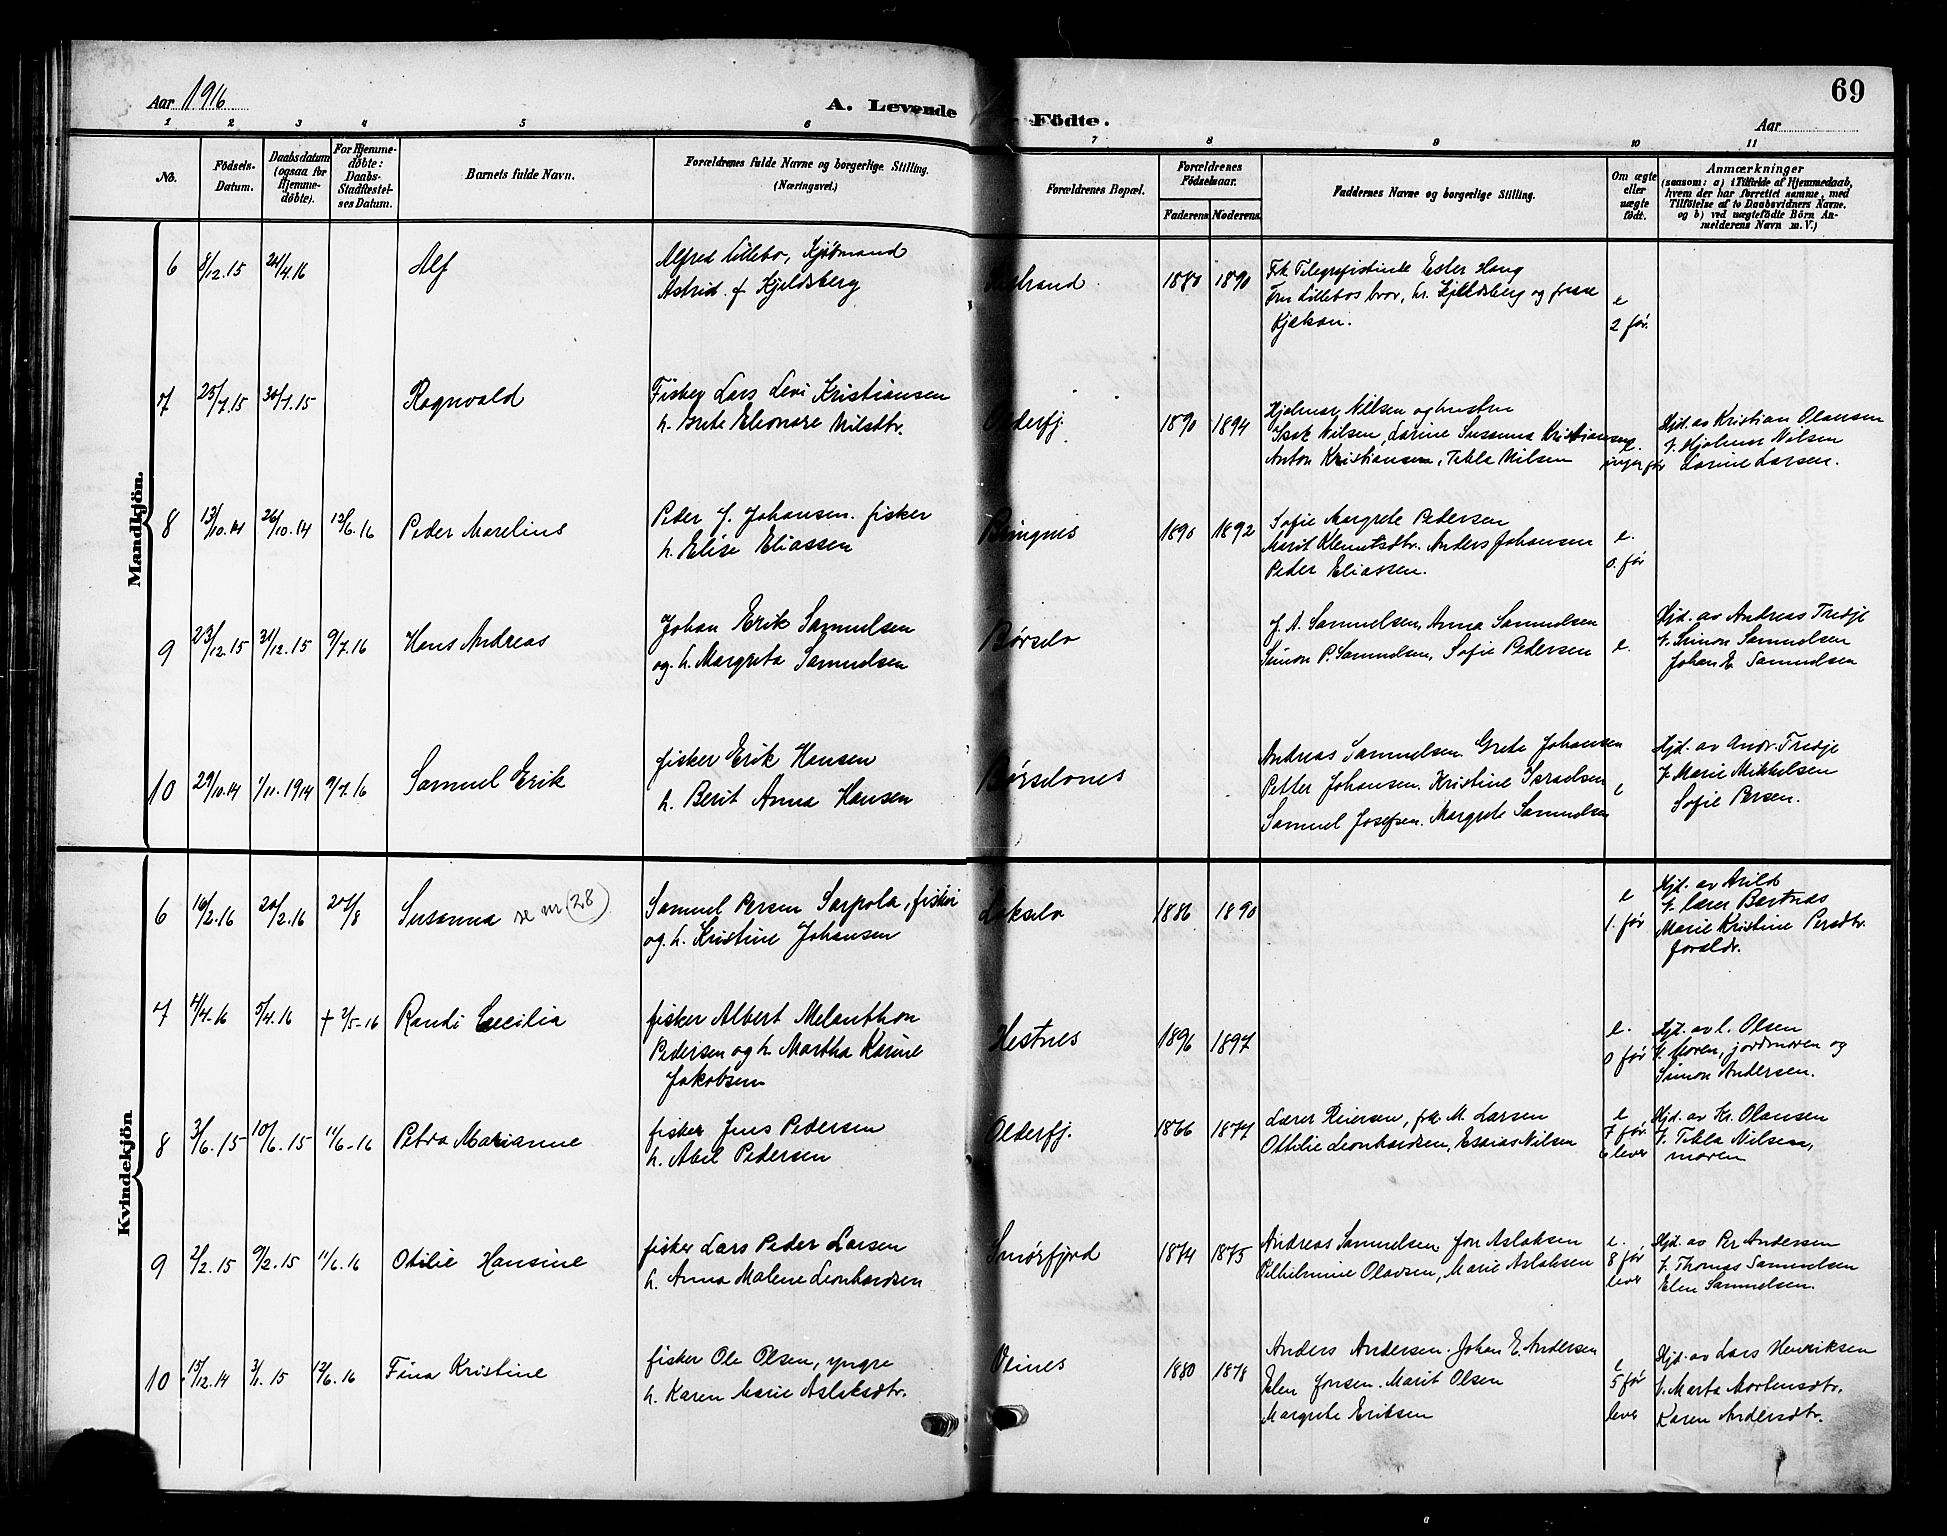 Aar 1916
A. Levende Födte.
69
Aar
1 2 3 4 5 6 7 8 9 10 11
No.
Födsels-Datum.
Daabsdatum (ogsaa for Hjemme-døbte).
For Hjemme-døbte: Daabs-Stadfæstel-ses Datum.
Barnets fulde Navn.
Forældrenes fulde Navne og borgerlige Stilling. (Næringsvei.)
Forældrenes Bopæl.
Forældrenes Födselsaar.
Faderens Moderens
Faddernes Navne og borgerlige Stilling.
Om ægte eller uægte født.
Anmærkninger
(saasom: a) i Tilfælde af Hjemmedaab,
hvem der har forrettet samme, med
Tilföielse af to Daabsvidners Navne.
og b) ved uægtefödte Börn An-
melderens Navn m. V.)
Mandkjön.
6 8/12.15 24/4.16 Alf
Alfred Lillebo, Kjöbmand
Astrid f. Kjeldsberg
1880 1890
Frk Telegrafistinde Ester Haug
Fru Lillebos bror, hr. Kjeldsberg og frue
Kjækan.
e
2 før.
7 25/7.15 30/7.15 Ragnvald
Fisker Lars Levi Kristiansen
h. Brete Eleonore Nilsdtr.
Olderfj. 1890 1894
Hjalmar Nilsen og hustru
Isak Nilsen, Larine Susanna Kristiansen
Anton Kristiansen, Tekla Nilsen
e.
ingen før
Hjd. av Kristian Olausen
V. Hjalmar Nilsen
Larine Larsen.
8 13/10.14 26/10.14 12/6.16 Peder Marelius
Peder J. Johansen. fisker
h. Elise Eliassen
Bringnes 1890 1892
Sofie Margrete Pedersen
Marit Klemetsdtr. Anders Johansen
Peder Eliassen.
e.
0. før
9 23/12.15 31/12.15 9/7.16 Hans Andreas
Johan Erik Samuelsen
og h. Margreta Samuelsen
Børselv
J. A. Samuelsen, Anna Samuelsen
Simon P. Samuelsen, Sofie Pedersen
e.
Hjd. av Andreas Tredje
V. Simon Samuelsen
Johan E. Samuelsen
10 29/10.14 1/11.1914 9/7.16 Samuel Erik
fisker Erik Hansen
h. Berit Anna Hansen
Børselvnes
Andreas Samuelsen Grete Johansen
Petter Johansen. Kristine Israelsen
Samuel Josefsen. Margrete Samuelsen
e
Hjd. av Andr. Tredje
V. Marie Mikkelsen
Sofie Persen.
Kvindekjön
6 16/2.16 20/2.16 27/8 Susanna se nr (28)
Samuel Persen Sarpola, fisker
og h. Kristine Johansen
Lakselv 1886 1890
e
1. før
Hjd. av Arild
V. lærer Bertnæs
Marie Kristine Persdtr.
forældr.
7 4/4-16 5/4.16 † 2/5-16 Randi Cecilia
fisker Albert Melanthon
Pedersen og h. Martha Karine
Jakobsen
Hestnes 1896 1897
e.
0 før
Hjd. av l. Olsen
V. Moren, jordmoren og
Simon Andersen.
8 3/6.15 10/6.15 11/6-16 Petra Marianne
fisker Jens Pedersen
h. Abel Pedersen
Olderfj. 1866 1877
Lærer Reiersen, frk. M. Larsen
Ottilie Leonhardsen, Esaias Nilsen
e
7 før
6 lever
Hjd. av Kr. Olausen
V. Tekla Nilsen,
moren
9 2/2.15 9/2.15 11/6.16 Otilie Hansine
fisker Lars Peder Larsen
h. Anna Malene Leonhardsen
Smørfjord 1874 1875
Andreas Samuelsen Jon Aslaksen
Vilhelmine Olavsen, Marie Aslaksen
e.
8 før
lever
Hjd. av Per Andersen
V. Thomas Samuelsen
Elen Samuelsen.
10 15/12.14 3/1.15 12/6.16 Fina Kristine
fisker Ole Olsen, yngre
h. Karen Marie Aslaksdtr.
Veines 1880 1878
Anders Andersen. Johan E. Andersen
Elen Jonsen. Marit Olsen
Margrete Eriksen
e
5 før
lever
Hjd. av Lars Henriksen
V. Marta Mortensdtr.
Karen Andersdtr.